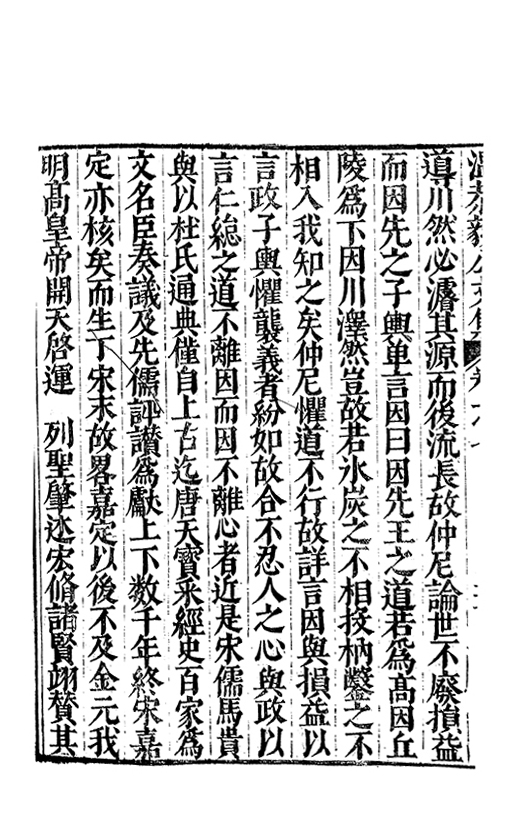 導川然必濬其源而後流長故仲尼論世不廢損益
而因先之子輿單言因曰因先王之道若為高因丘
陵為下因川澤然豈故若氷炭之不相技枘鑿之不
相入我知之矣仲尼懼道不行故詳言因與損益以
言政子輿懼襲義者紛如故合不忍人之心與政以
言仁緫之道不離因而因不離心者近是宋儒馬貴
與以杜氏通典僅自上古迄唐天寳采經史百家為
文名臣奏議及先儒評讃為獻上下数千年終宋嘉
定亦核矣而生丁宋末故畧嘉定以後不及金元我
明髙皇帝開天啓運　列聖肇述宏脩諸賢翊賛其